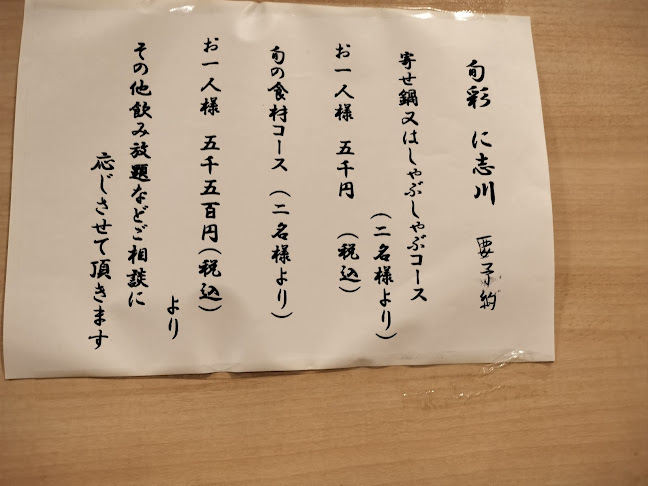 旬彩 に志川 要予約
寄せ鍋又はしゃぶしゃぶコース
(二名様より)
お一人様 五千円 (税込)
旬の食材コース (二名様より)
お一人様 五千五百円(税込)
より
その他飲み放題などご相談に
応じさせて頂きます